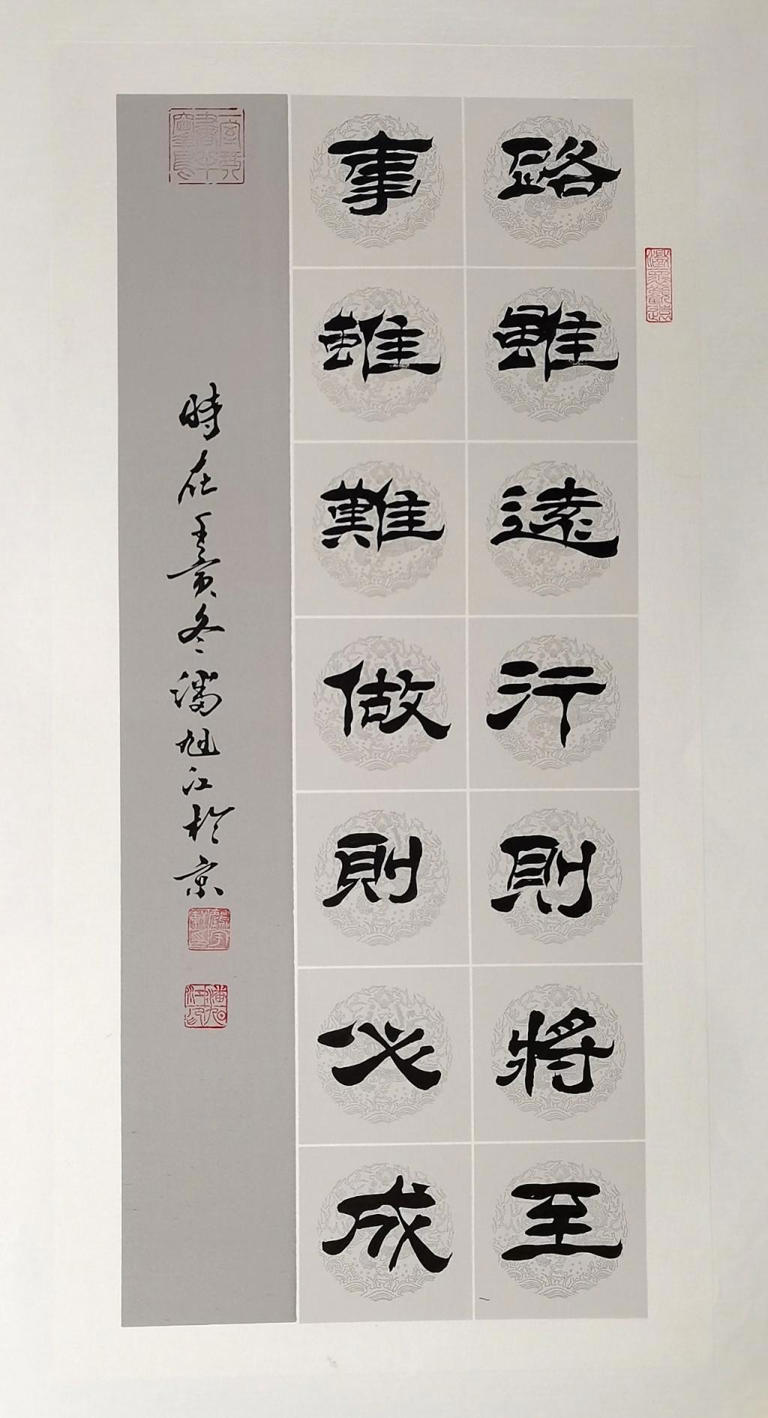 路雖遠行則將至
事雖難做則必成
時在壬寅冬潘旭江於京